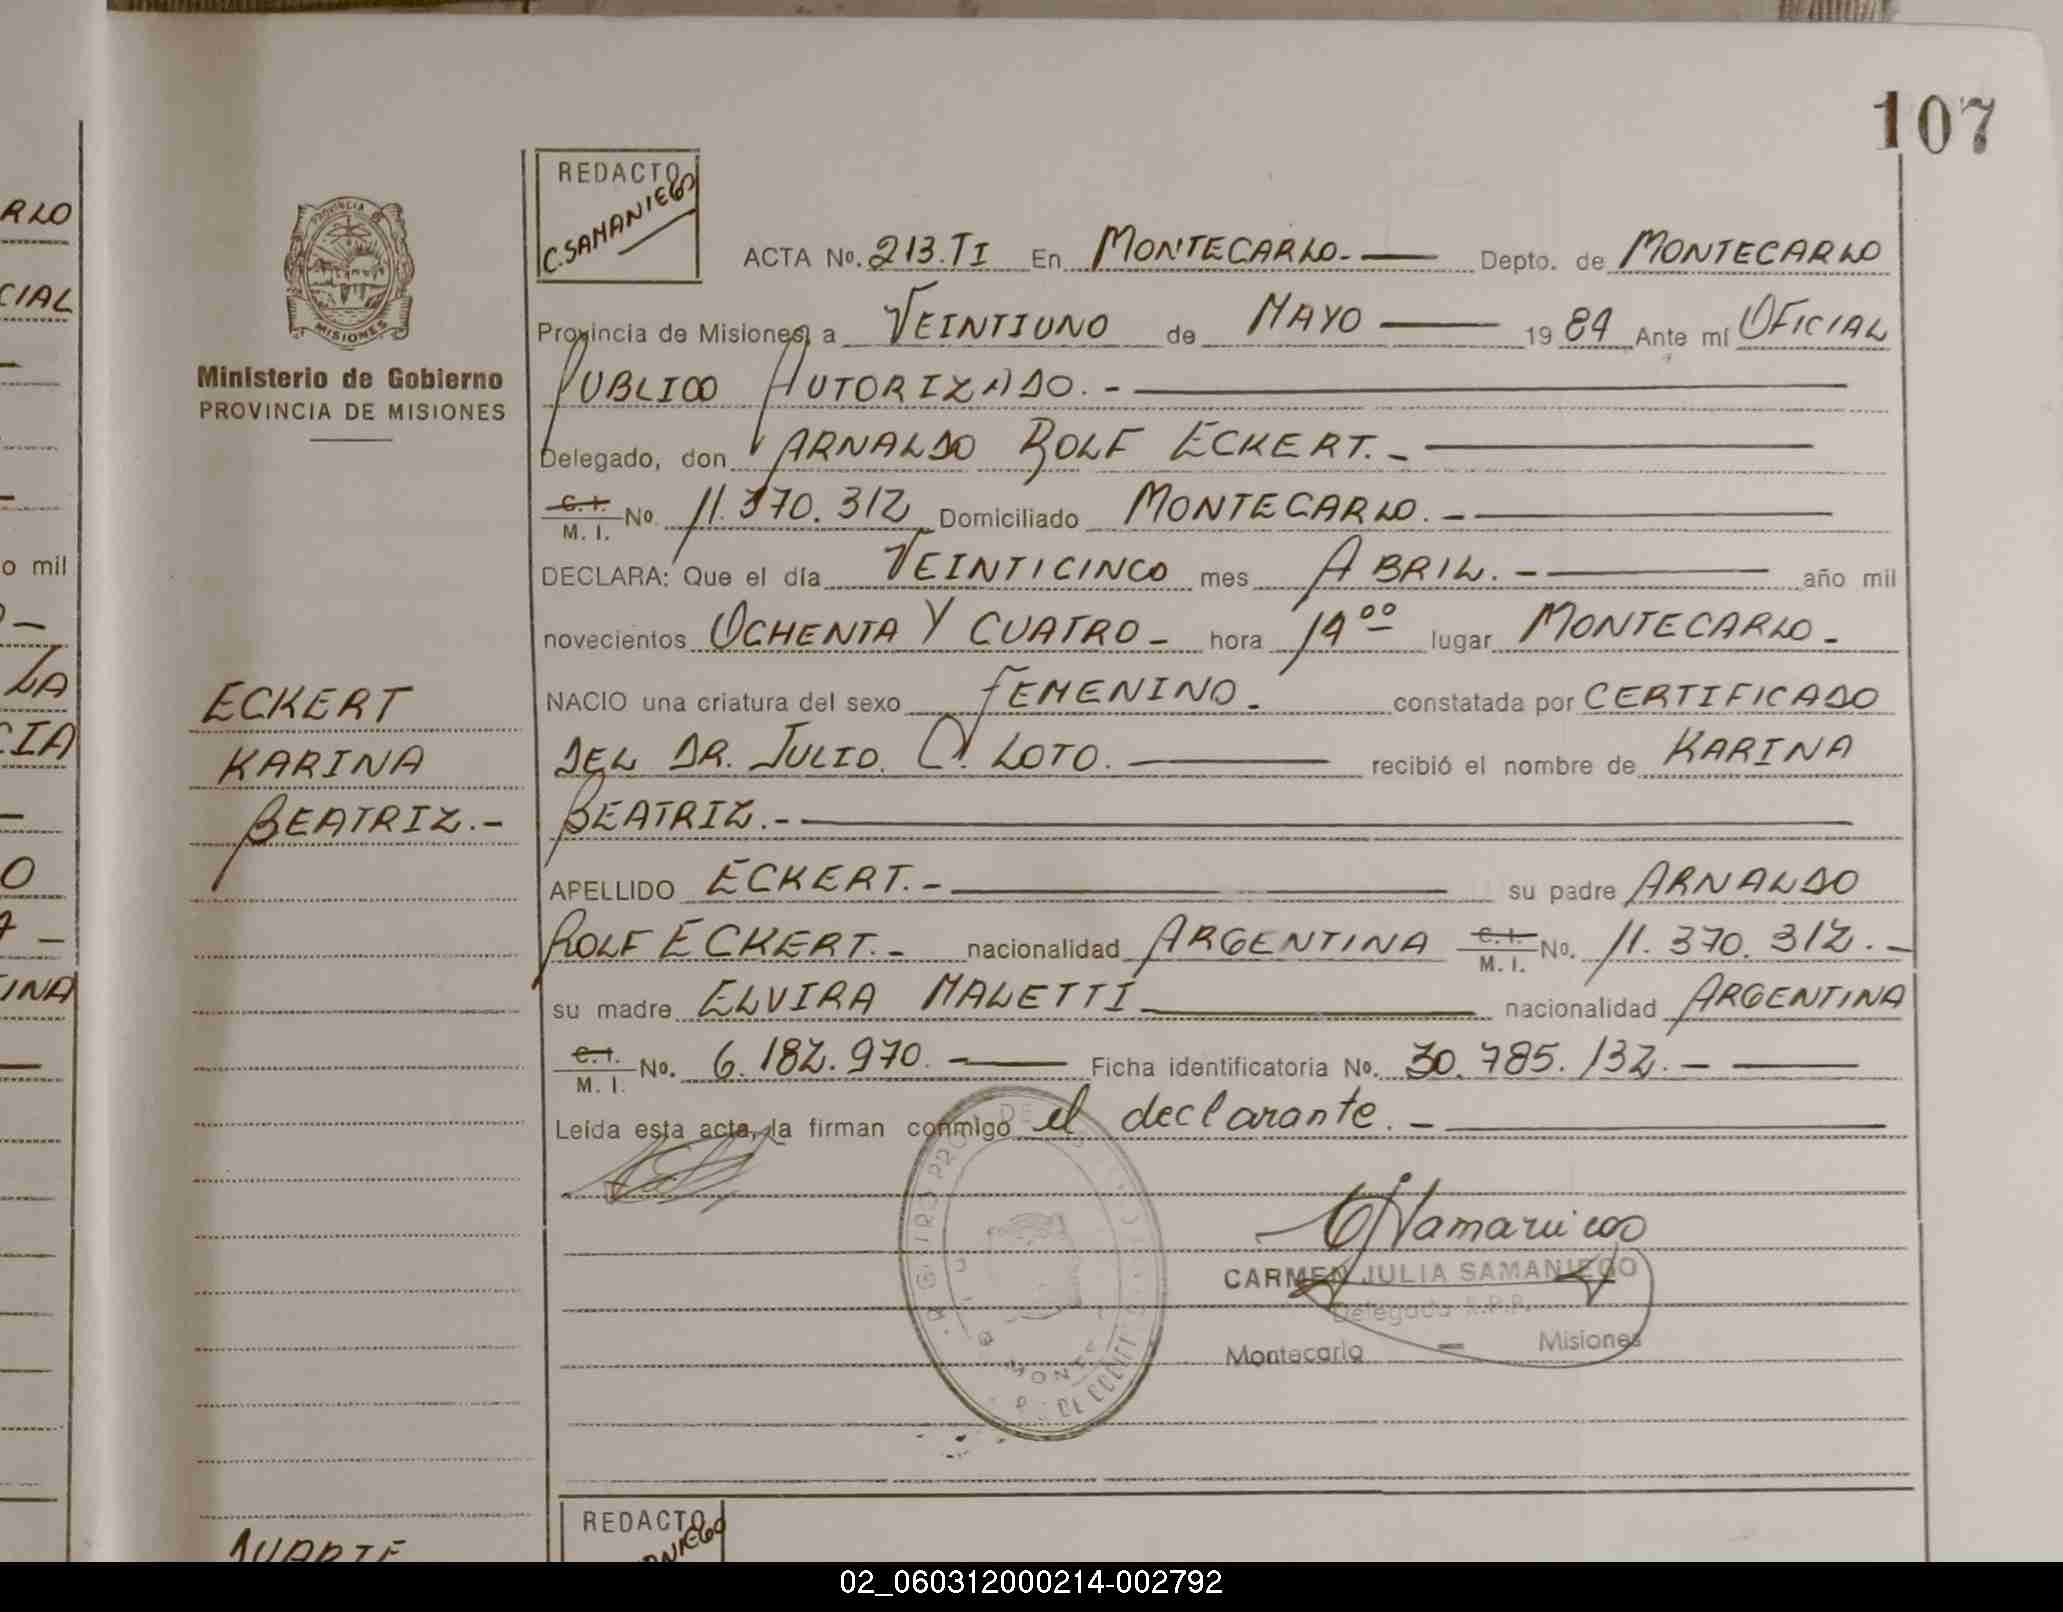 107
RLO
CIAL
o mil
LA
CIA
O
INA
PROVINCIA D
MISIONES
Ministerio de Gobierno
PROVINCIA DE MISIONES
ECKERT
KARINA
BEATRIZ.-
REDACTO
C. SAMANIEGO
ACTA No. 213.TI En MONTECARLO.- Depto. de MONTECARLO
Provincia de Misiones, a VEINTIUNO de MAYO 1984 Ante mí OFICIAL
PUBLICO AUTORIZADO.-
Delegado, don ARNALDO ROLF ECKERT.-
C. I. / M. I. No. 11.370.312 Domiciliado MONTECARLO.-
DECLARA: Que el día VEINTICINCO mes ABRIL.- año mil
novecientos OCHENTA Y CUATRO- hora 19°° lugar MONTECARLO-
NACIO una criatura del sexo FEMENINO- constatada por CERTIFICADO
DEL DR. JULIO. C. LOTO. recibió el nombre de KARINA
BEATRIZ.-
APELLIDO ECKERT.- su padre ARNALDO
ROLF ECKERT.- nacionalidad ARGENTINA C. I. / M. I. No. 11.370.312.-
su madre ELVIRA MALETTI nacionalidad ARGENTINA
C. I. / M. I. No. 6.182.970.- Ficha identificatoria No. 30.785.132.-
Leída esta acta, la firman conmigo el declarante.-
CARMEN JULIA SAMANIEGO
Delegada R.P.P.
Montecarlo - Misiones
REDACTO
DUARTE
02_060312000214-002792